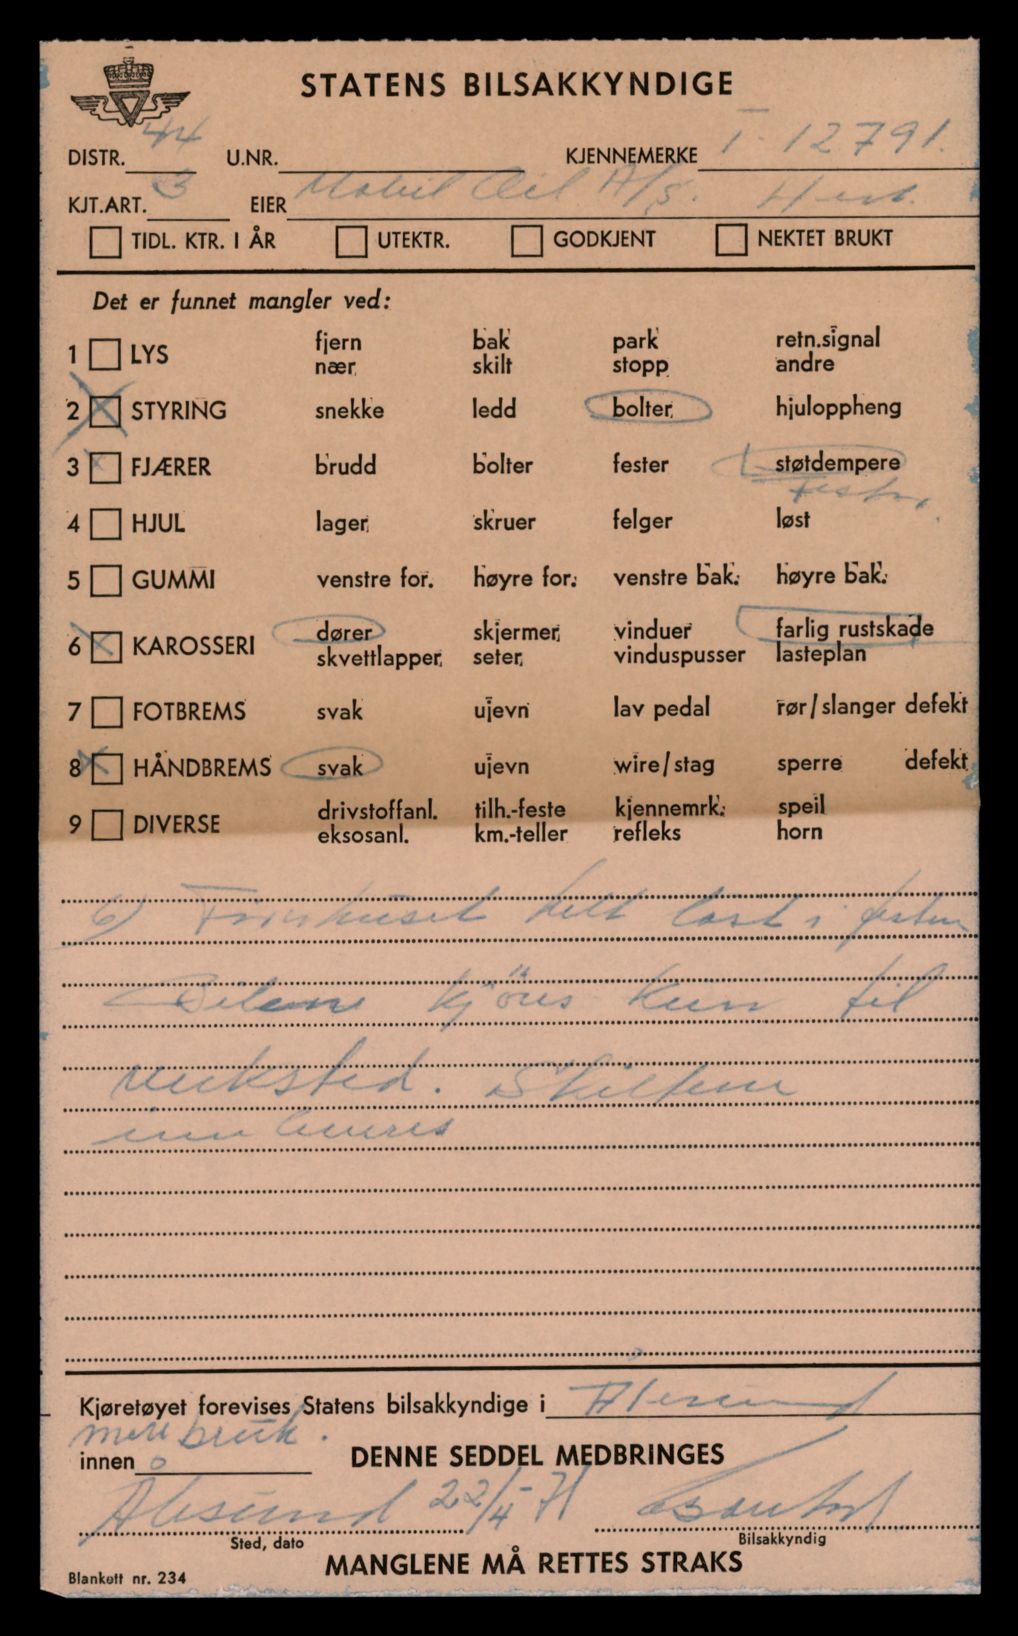 STATENS BILSAKKYNDIGE
DISTR. 44 U.NR. KJENNEMERKE T-12791.
KJT.ART. 3 EIER Mobil Oil A/S.
TIDL. KTR. I ÅR UTEKTR. GODKJENT NEKTET BRUKT
Det er funnet mangler ved:
1 LYS fjern nær bak skilt park stopp retn.signal andre
2 STYRING snekke ledd bolter hjuloppheng
3 FJÆRER brudd bolter fester støtdempere
4 HJUL lager skruer felger løst
5 GUMMI venstre for. høyre for. venstre bak. høyre bak.
6 KAROSSERI dører skvettlapper skjermer seter vinduer vinduspusser farlig rustskade lasteplan
7 FOTBREMS svak ujevn lav pedal rør/slanger defekt
8 HÅNDBREMS svak ujevn wire/stag sperre defekt
9 DIVERSE drivstoffanl. eksosanl. tilh.-feste km.-teller kjennemrk. refleks speil horn
6) helt løst i
kjöres kun til
verksted. Skiltene
innleveres
Kjøretøyet forevises Statens bilsakkyndige i Ålesund
bruk.
innen DENNE SEDDEL MEDBRINGES
Ålesund 22/4-71
Sted, dato Bilsakkyndig
MANGLENE MÅ RETTES STRAKS
Blankett nr. 234